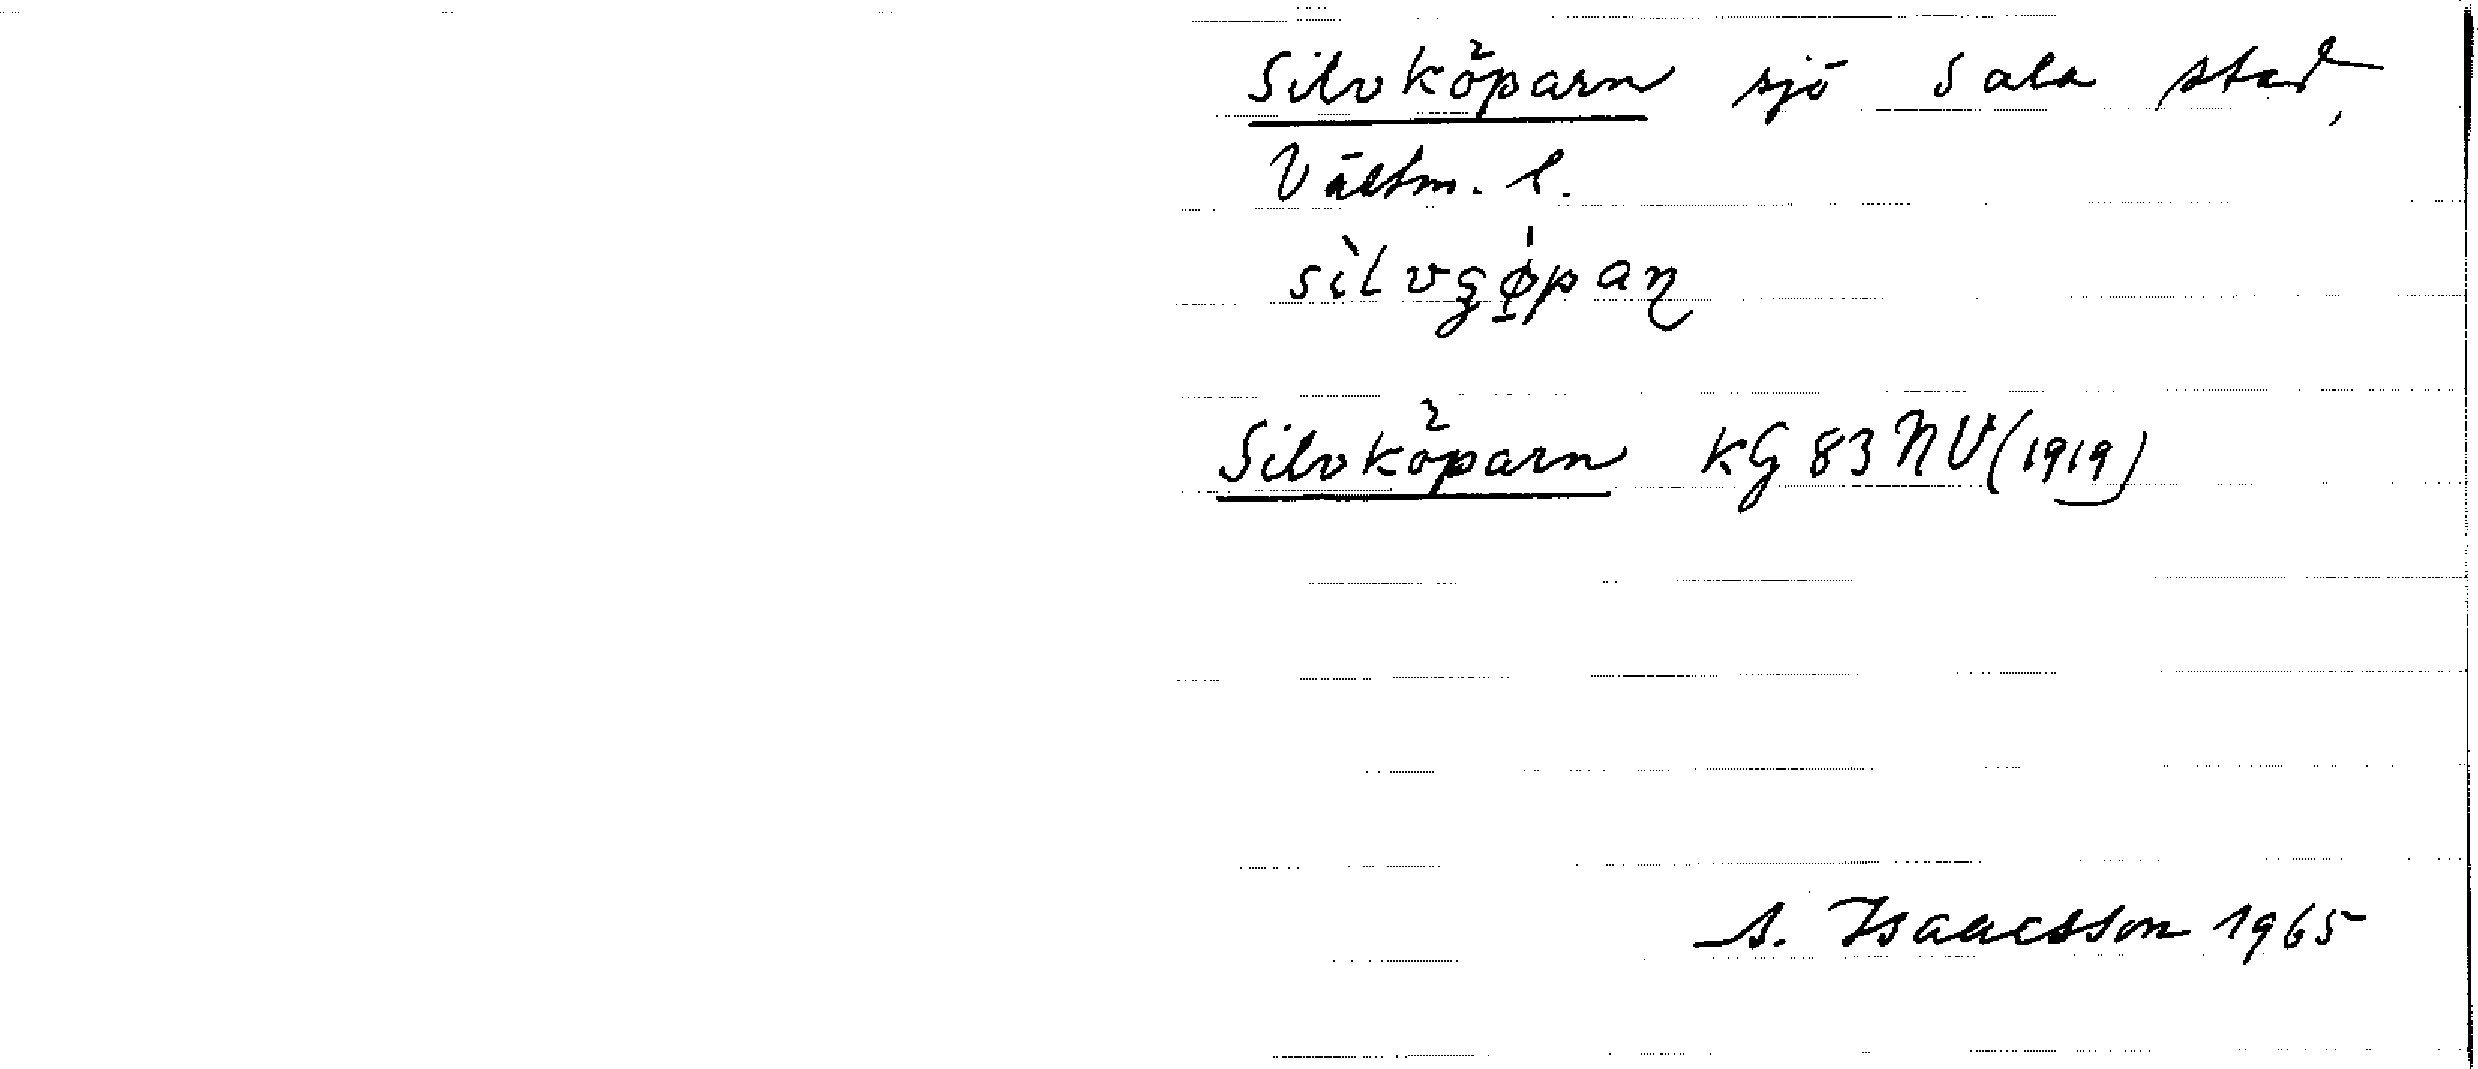 Silvköparn sjö Sala stad,
Västm. l.
sìlvgǿ̱paɳ
Silvköparn KG 83 NV (1919)
S. Isaacsson 1965